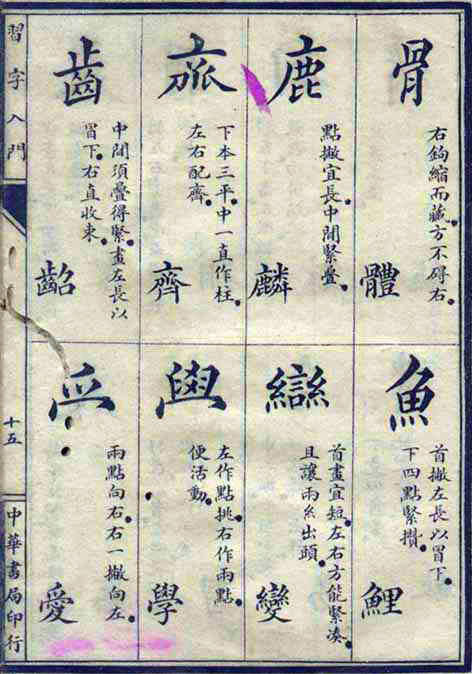 骨
右鉤縮而藏。方不碍右。
體
鹿
點撇宜長。中間緊疊。
麟
下本三平。中一直作柱。
左右配齊。
齊
齒
中間須疊得緊。畫左長以
冒下。右直收束。
齠
魚
首撇左長以冒下。
下四點緊攢。
鯉
䜌
首畫宜短。左右方能緊凑。
且讓兩糸出頭。
變
左作點挑。右作兩點。
便活動。
學
兩點向右。右一撇向左。
愛
習字入門
十五
中華書局印行